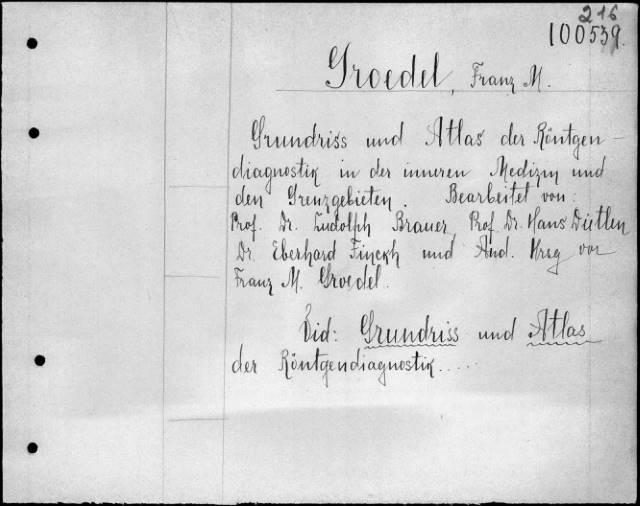 216
100539.
Groedel, Franz M.
Grundriss und Atlas der Röntgen-
diagnostik in der inneren Medizin und
den Grenzgebieten. Bearbeitet von:
Prof. Dr. Ludolph Brauer, Prof. Dr. Hans
Dr. Eberhard Finckh und And. Hrsg von
Franz M. Groedel.
Vid: Grundriss und Atlas
der Röntgendiagnostik.....